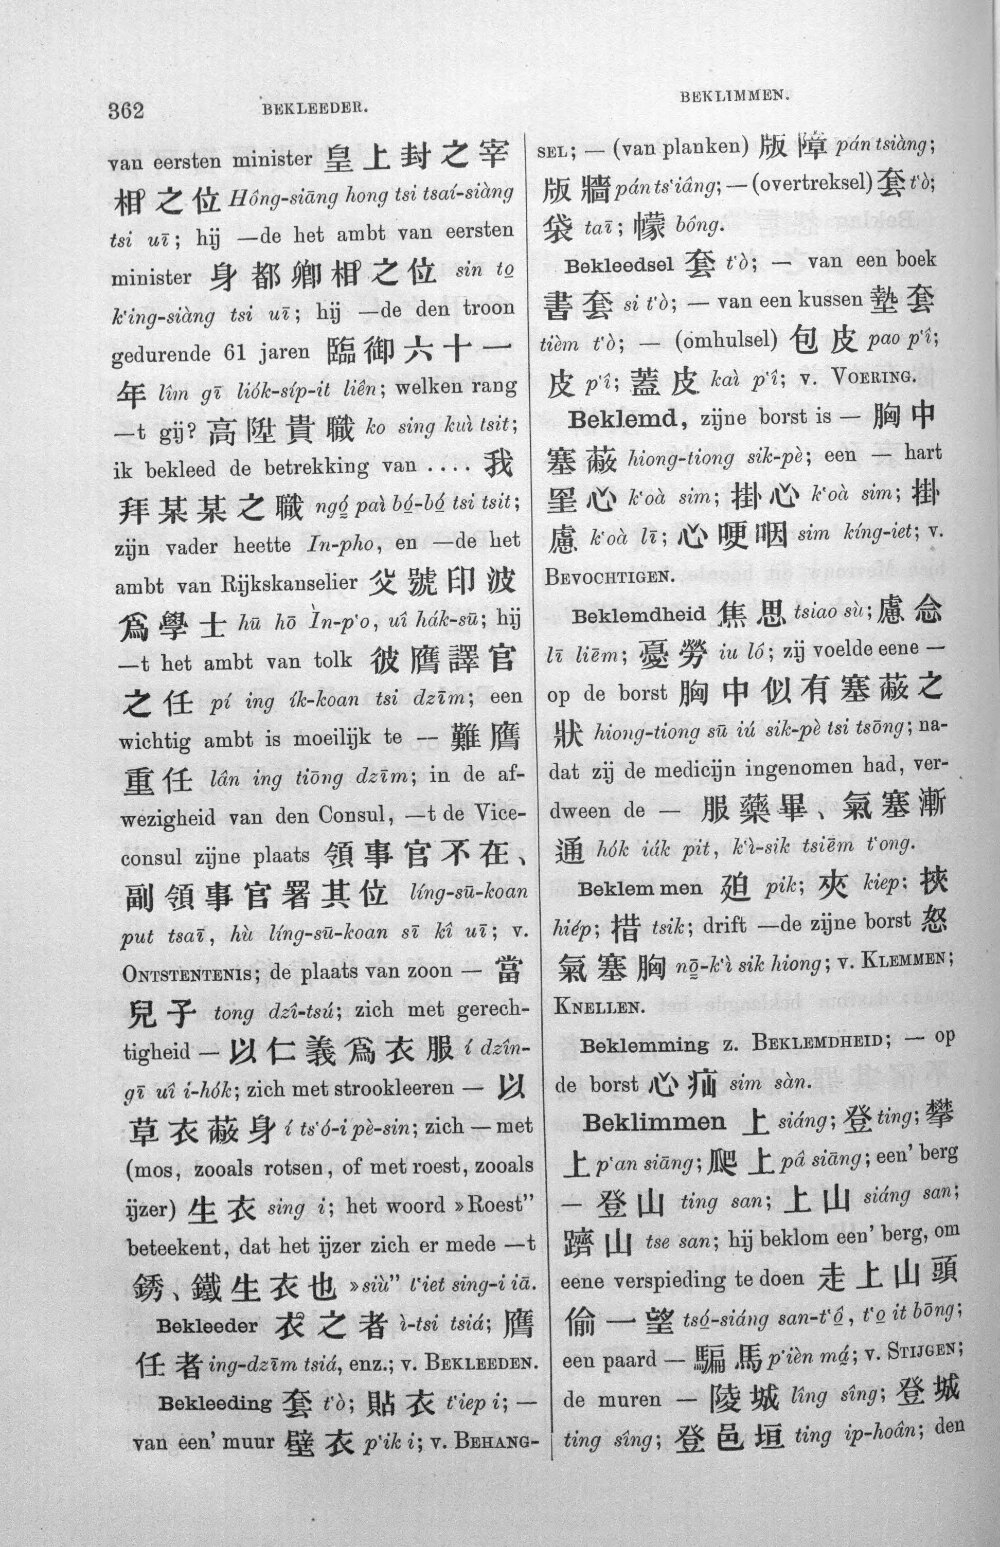 362
BEKLEEDER.
BEKLIMMEN.
van eersten minister 皇上封之宰
相之位 Hông-siāng hong tsi tsaí-siàng
tsi uī; hij —de het ambt van eersten
minister 身都卿相之位 sin to̤
k'ing-siàng tsi uī; hij —de den troon
gedurende 61 jaren 臨御六十一
年 lîm gī liók-síp-it liên; welken rang
—t gij? 高陞貴職 ko sing kuì tsit;
ik bekleed de betrekking van .... 我
拜某某之職 ngó̤ paì bó̤-bó̤ tsi tsit;
zijn vader heette In-pho, en —de het
ambt van Rijkskanselier 父號印波
爲學士 hū hō Ìn-p'o, uî hák-sū; hij
—t het ambt van tolk 彼膺譯官
之任 pí ing ík-koan tsi dzīm; een
wichtig ambt is moeilijk te — 難膺
重任 lân ing tiōng dzīm; in de af-
wezigheid van den Consul, —t de Vice-
consul zijne plaats 領事官不在、
副領事官署其位 líng-sū-koan
put tsaī, hù líng-sū-koan sī kî uī; v.
ONTSTENTENIS; de plaats van zoon — 當
兒子 tong dzî-tsú; zich met gerech-
tigheid — 以仁義爲衣服 í dzîn-
gī uî i-hók; zich met strookleeren — 以
草衣蔽身 í ts'ó-i pè-sin; zich — met
(mos, zooals rotsen, of met roest, zooals
ijzer) 生衣 sing i; het woord »Roest"
beteekent, dat het ijzer zich er mede —t
銹、鐵生衣也 »siù" t'iet sing-i iā.
Bekleeder 衣之者 ì-tsi tsiá;膺
任者 ing-dzīm tsiá, enz.; v. BEKLEEDEN.
Bekleeding 套 t'ò; 貼衣 t'iep i; —
van een' muur 壁衣 p'ik i; v. BEHANG-
SEL; — (van planken) 版障 pán tsiàng;
版牆 pán ts'iâng; — (overtreksel) 套 t'ò;
袋 taī; 幪 bông.
Bekleedsel 套 t'ò; — van een boek
書套 si t'ò; — van een kussen 墊套
tièm t'ò; — (omhulsel) 包皮 pao p'î;
皮 p'î; 蓋皮 kaì p'î; v. VOERING.
Beklemd, zijne borst is — 胸中
塞蔽 hiong-tiong sik-pè; een — hart
罣心 k'oà sim; 掛心 k'oà sim; 掛
慮 k'oà lī; 心哽咽 sim kíng-iet; v.
BEVOCHTIGEN.
Beklemdheid 焦思 tsiao sù; 慮念
lī liēm; 憂勞 iu ló; zij voelde eene —
op de borst 胸中似有塞蔽之
狀 hiong-tiong sū iú sik-pè tsi tsōng; na-
dat zij de medicijn ingenomen had, ver-
dween de — 服藥畢、氣塞漸
通 hók iák pit, k'ì-sik tsiēm t'ong.
Beklemmen 廹 pik; 夾 kiep; 挾
hiép; 措 tsik; drift —de zijne borst 怒
氣塞胸 nō̤-k'ì sik hiong; v. KLEMMEN;
KNELLEN.
Beklemming z. BEKLEMDHEID; — op
de borst 心疝 sim sàn.
Beklimmen 上 siáng; 登 ting; 攀
上 p'an siāng; 爬上 pâ siāng; een' berg
— 登山 ting san; 上山 siáng san;
躋山 tse san; hij beklom een' berg, om
eene verspieding te doen 走上山頭
偷一望 tsó̤-siáng san-t'ô̤, t'o̤ it bōng;
een paard — 騙馬 p'ièn má̤; v. STIJGEN;
de muren — 陵城 lîng sîng; 登城
ting sîng; 登邑垣 ting ip-hoân; den